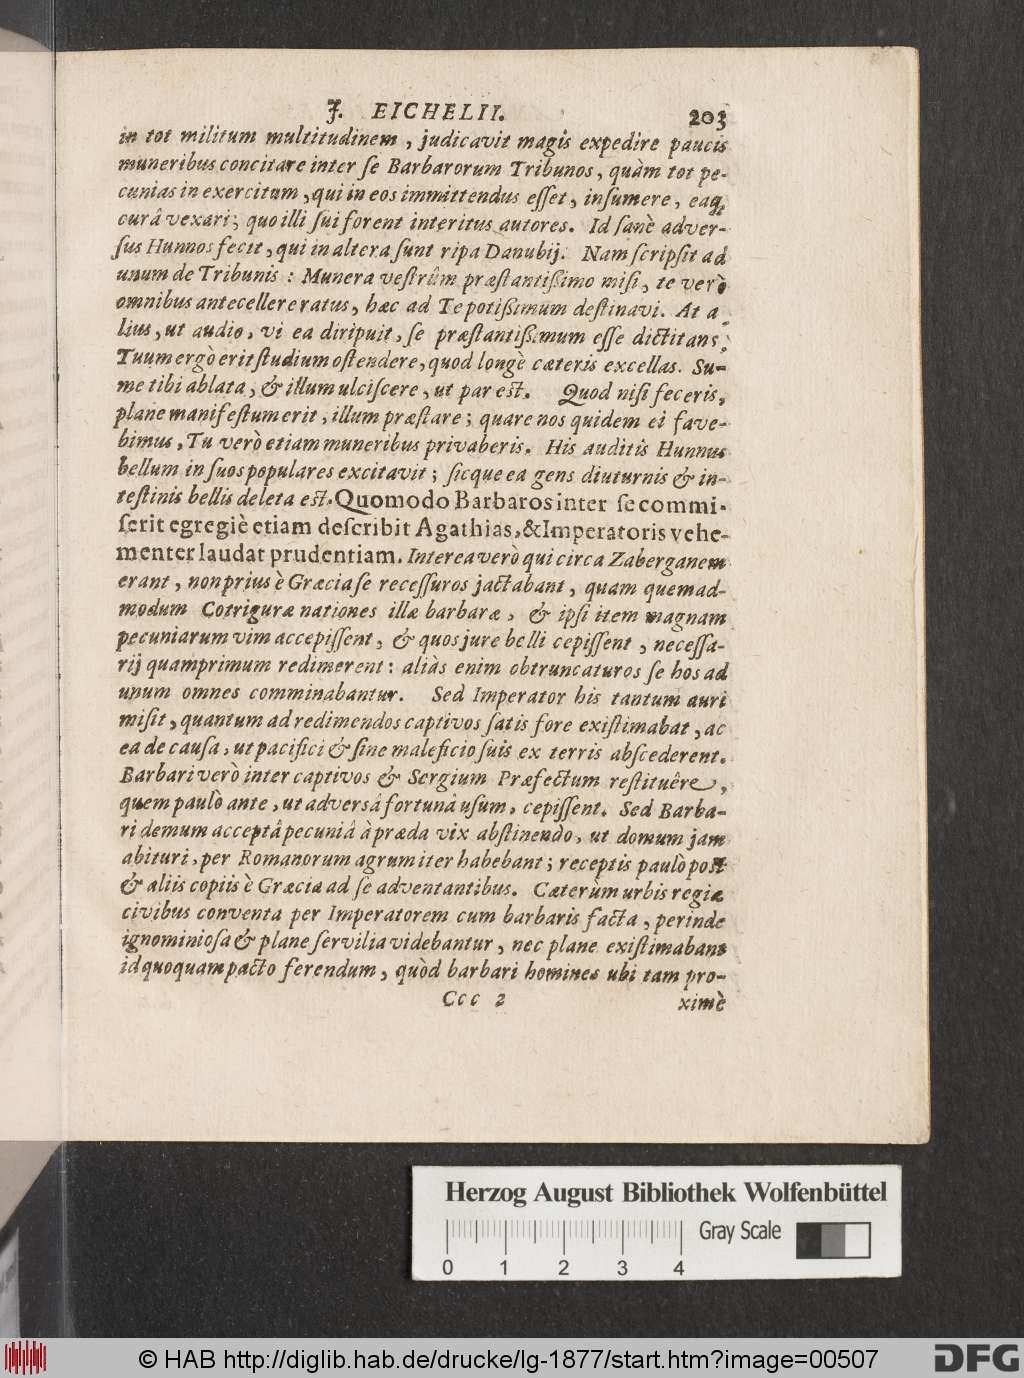 J. EICHELII. 203
in tot militum multitudinem, judicavit magis expedire paucis
muneribus concitare inter ſe Barbarorum Tribunos, quàm tot pe-
cunias in exercitum, qui in eos immittendus eſſet, inſumere, eaq;
curâ vexari; quo illi ſui forent interitus autores. Id ſanè adver-
ſus Hunnos fecit, qui in altera ſunt ripa Danubij. Nam ſcripſit ad
unum de Tribunis: Munera veſtrûm præſtantiſsimo miſi, te verò
omnibus antecellere ratus, hæc ad Te potiſsimùm deſtinavi. At a-
lius, ut audio, vi ea diripuit, ſe præſtantiſsimum eſſe dictitans;
Tuum ergò erit ſtudium oſtendere, quod longè cæteris excellas. Su-
me tibi ablata, & illum ulciſcere, ut par eſt. Quod niſi feceris,
plane manifeſtum erit, illum præſtare; quare nos quidem ei fave-
bimus, Tu verò etiam muneribus privaberis. His auditis Hunnus
bellum in ſuos populares excitavit; ſicque ea gens diuturnis & in-
teſtinis bellis deleta eſt. Quomodo Barbaros inter ſe commi-
ſerit egregiè etiam deſcribit Agathias, & Imperatoris vehe-
menter laudat prudentiam. Interea verò qui circa Zaberganem
erant, non prius è Græcia ſe receſſuros jactabant, quam quemad-
modum Cotriguræ nationes illæ barbaræ, & ipſi item magnam
pecuniarum vim accepiſſent, & quos jure belli cepiſſent, neceſſa-
rij quamprimum redimerent: aliàs enim obtruncaturos ſe hos ad
unum omnes comminabantur. Sed Imperator his tantum auri
miſit, quantum ad redimendos captivos ſatis fore exiſtimabat, ac
ea de cauſa, ut pacifici & ſine maleficio ſuis ex terris abſcederent.
Barbari verò inter captivos & Sergium Præfectum reſtituêre,
quem paulò ante, ut adversâ fortunâ uſum, cepiſſent. Sed Barba-
ri demum acceptâ pecuniâ à præda vix abſtinendo, ut domum jam
abituri, per Romanorum agrum iter habebant; receptis paulò poſt
& aliis copiis è Græcia ad ſe adventantibus. Cæterùm urbis regiæ
civibus conventa per Imperatorem cum barbaris facta, perinde
ignominioſa & plane ſervilia videbantur, nec plane exiſtimabant
id quoquam pacto ferendum, quòd barbari homines ubi tam pro-
Ccc 2 ximè
Herzog August Bibliothek Wolfenbüttel
Gray Scale
0 1 2 3 4
© HAB http://diglib.hab.de/drucke/lg-1877/start.htm?image=00507
DFG